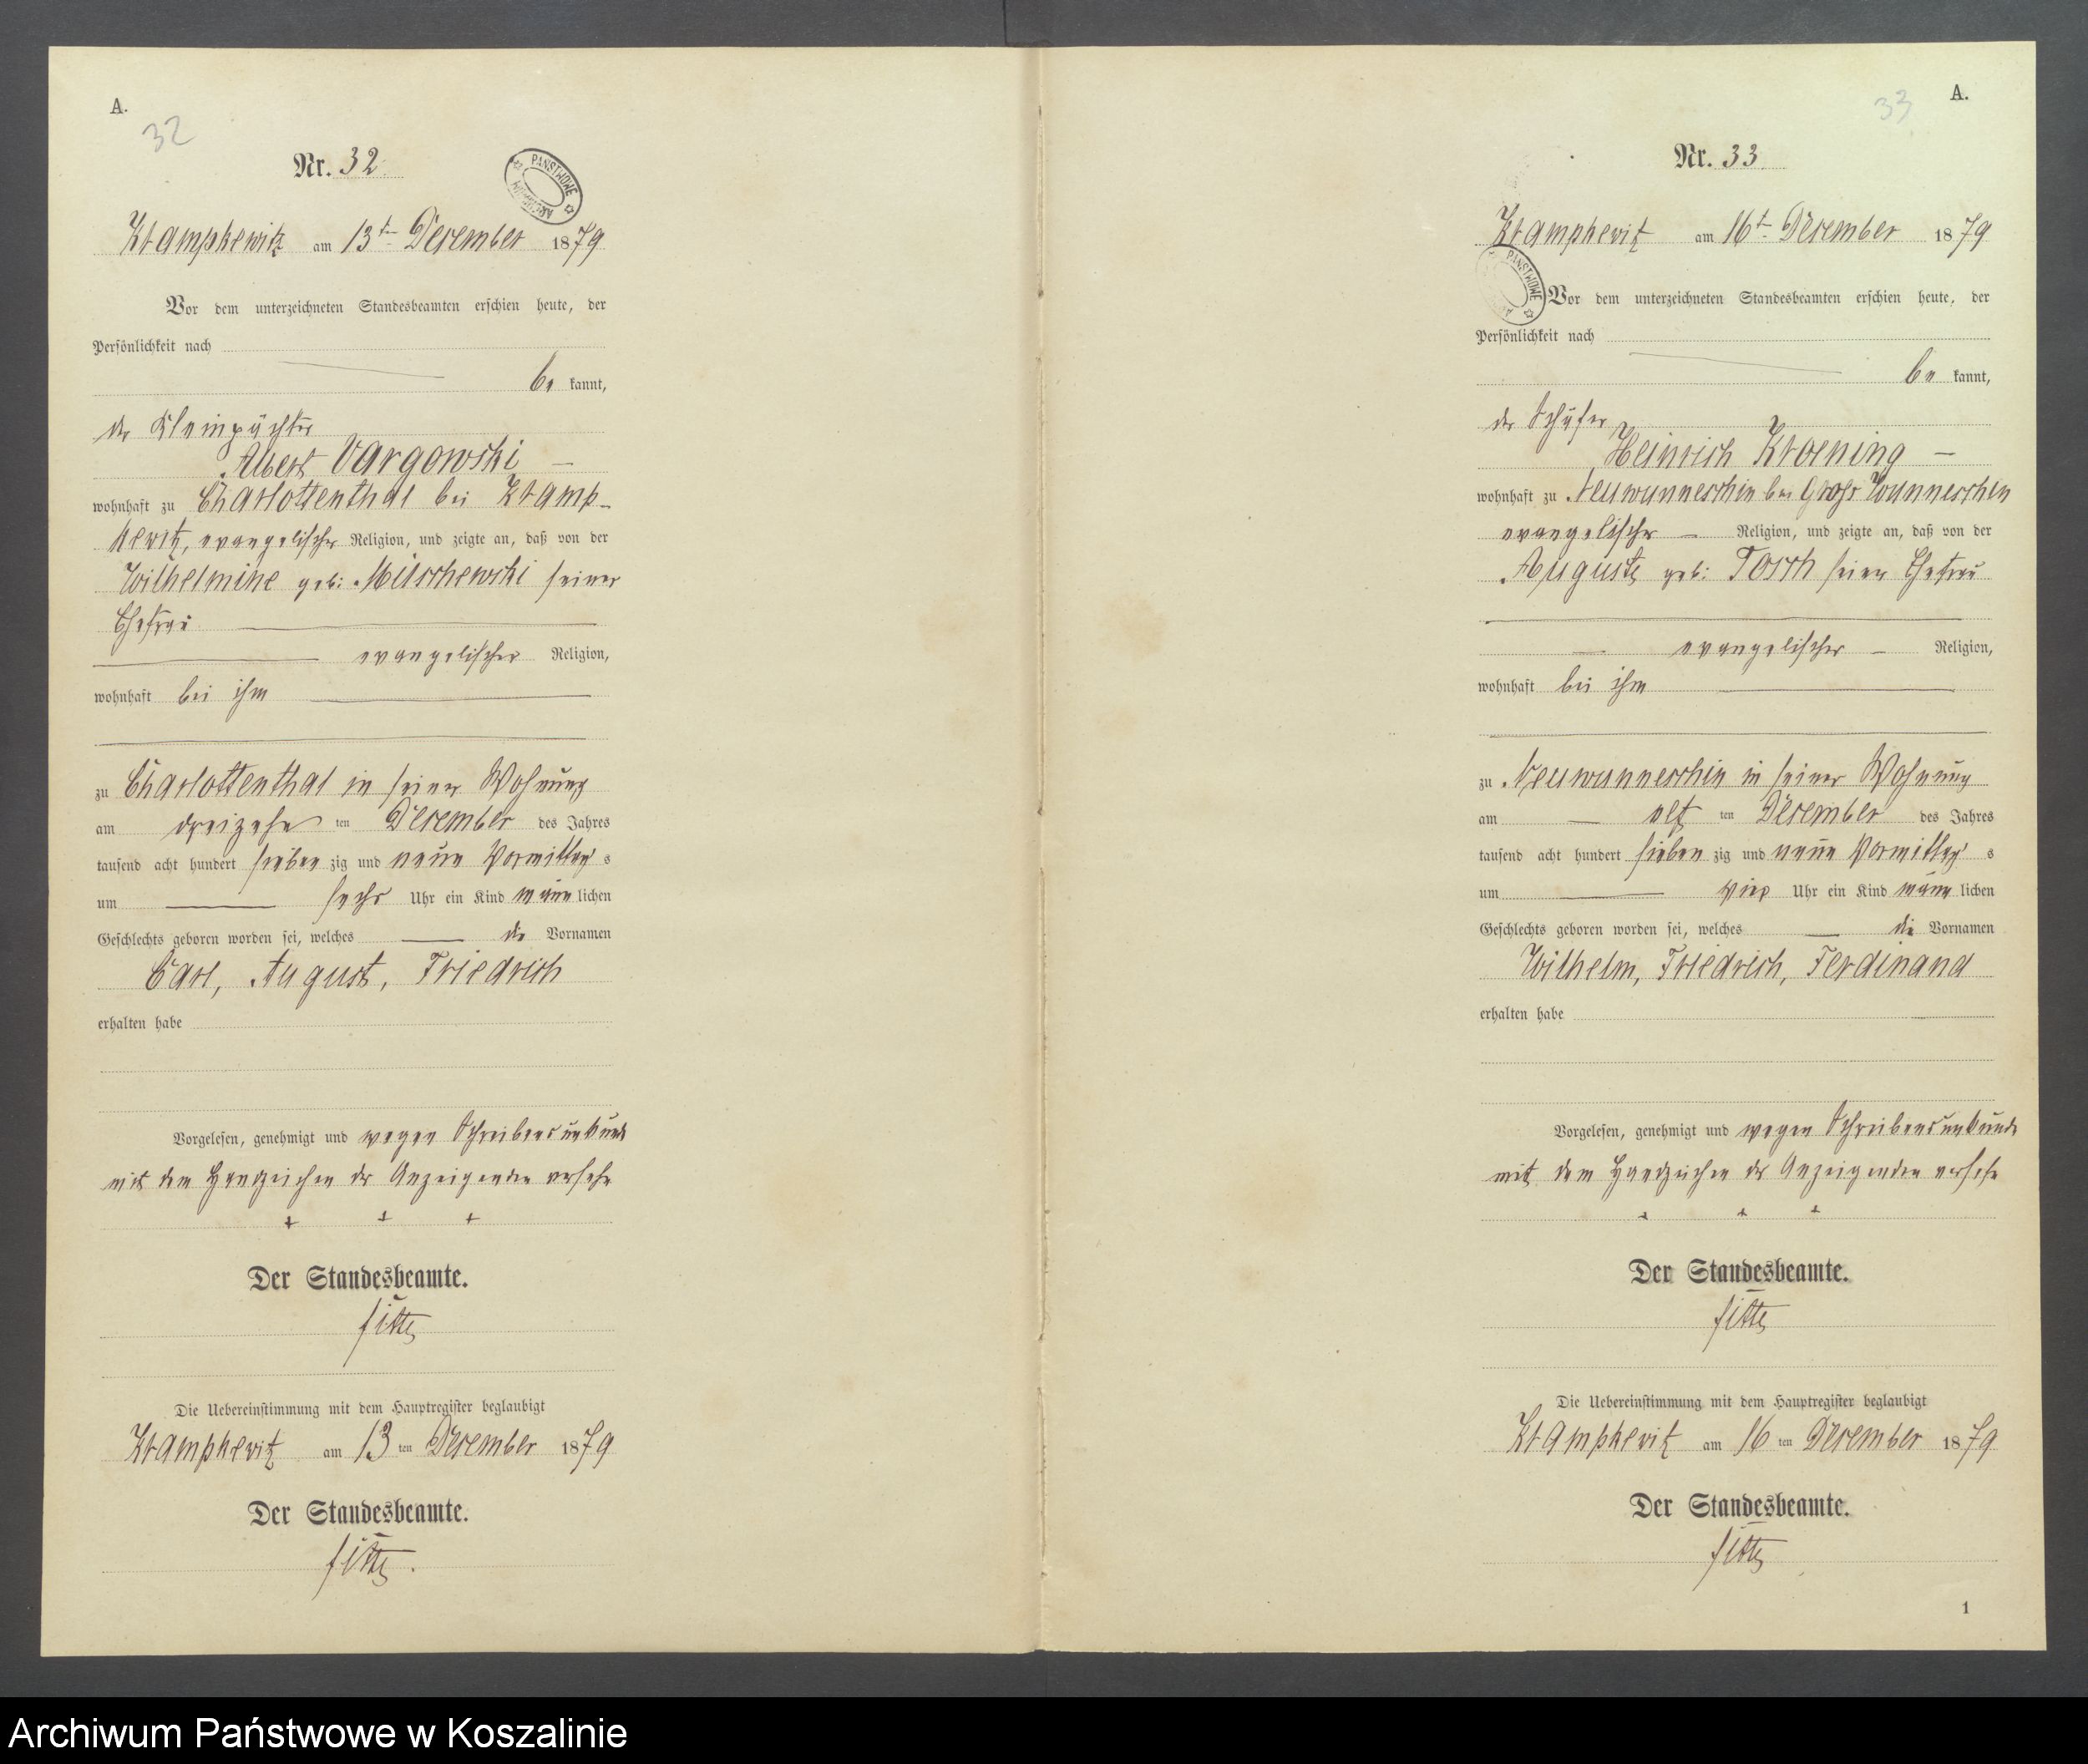 A.
32
Nr. 32.
PAŃSTWOWE ARCHIWUM
Krampkewitz am 13t Dezember 1879
Vor dem unterzeichneten Standesbeamten erschien heute, der
Persönlichkeit nach
be kannt,
der Kleinpächter
Albert Vargowski
wohnhaft zu Charlottenthal bei Kramp-
kewitz, evangelischer Religion, und zeigte an, daß von der
Wilhelmine geb: Mitschewski seiner
Ehefrau
evangelischer Religion,
wohnhaft bei ihm
zu Charlottenthal in seiner Wohnung
am dreizehn ten Dezember des Jahres
tausend acht hundert sieben zig und neun Vormittag s
um sechs Uhr ein Kind männ lichen
Geschlechts geboren worden sei, welches die Vornamen
Carl, August, Friedrich
erhalten habe
Vorgelesen, genehmigt und wegen Schreibensunkunde
mit dem Handzeichen des Anzeigenden versehn
+ + +
Der Standesbeamte.
Die Uebereinstimmung mit dem Hauptregister beglaubigt
Krampkewitz am 13 ten Dezember 1879
Der Standesbeamte.
A.
33
Nr. 33.
PAŃSTWOWE
Krampkewitz am 16t Dezember 1879
Vor dem unterzeichneten Standesbeamten erschien heute, der
Persönlichkeit nach
be kannt,
der Schäfer
Heinrich Kroening
wohnhaft zu Neuwunneschin bei Groß Wunneschin
evangelischer Religion, und zeigte an, daß von der
Auguste geb: Tosch seiner Ehefrau
evangelischer Religion,
wohnhaft bei ihm
zu Neuwunneschin in seiner Wohnung
am elf ten Dezember des Jahres
tausend acht hundert sieben zig und neun Vormittag s
um vier Uhr ein Kind männ lichen
Geschlechts geboren worden sei, welches die Vornamen
Wilhelm, Friedrich, Ferdinand
erhalten habe
Vorgelesen, genehmigt und wegen Schreibensunkunde
mit dem Handzeichen des Anzeigenden versehn
+ + +
Der Standesbeamte.
Die Uebereinstimmung mit dem Hauptregister beglaubigt
Krampkewitz am 16 ten Dezember 1879
Der Standesbeamte.
1
Archiwum Państwowe w Koszalinie